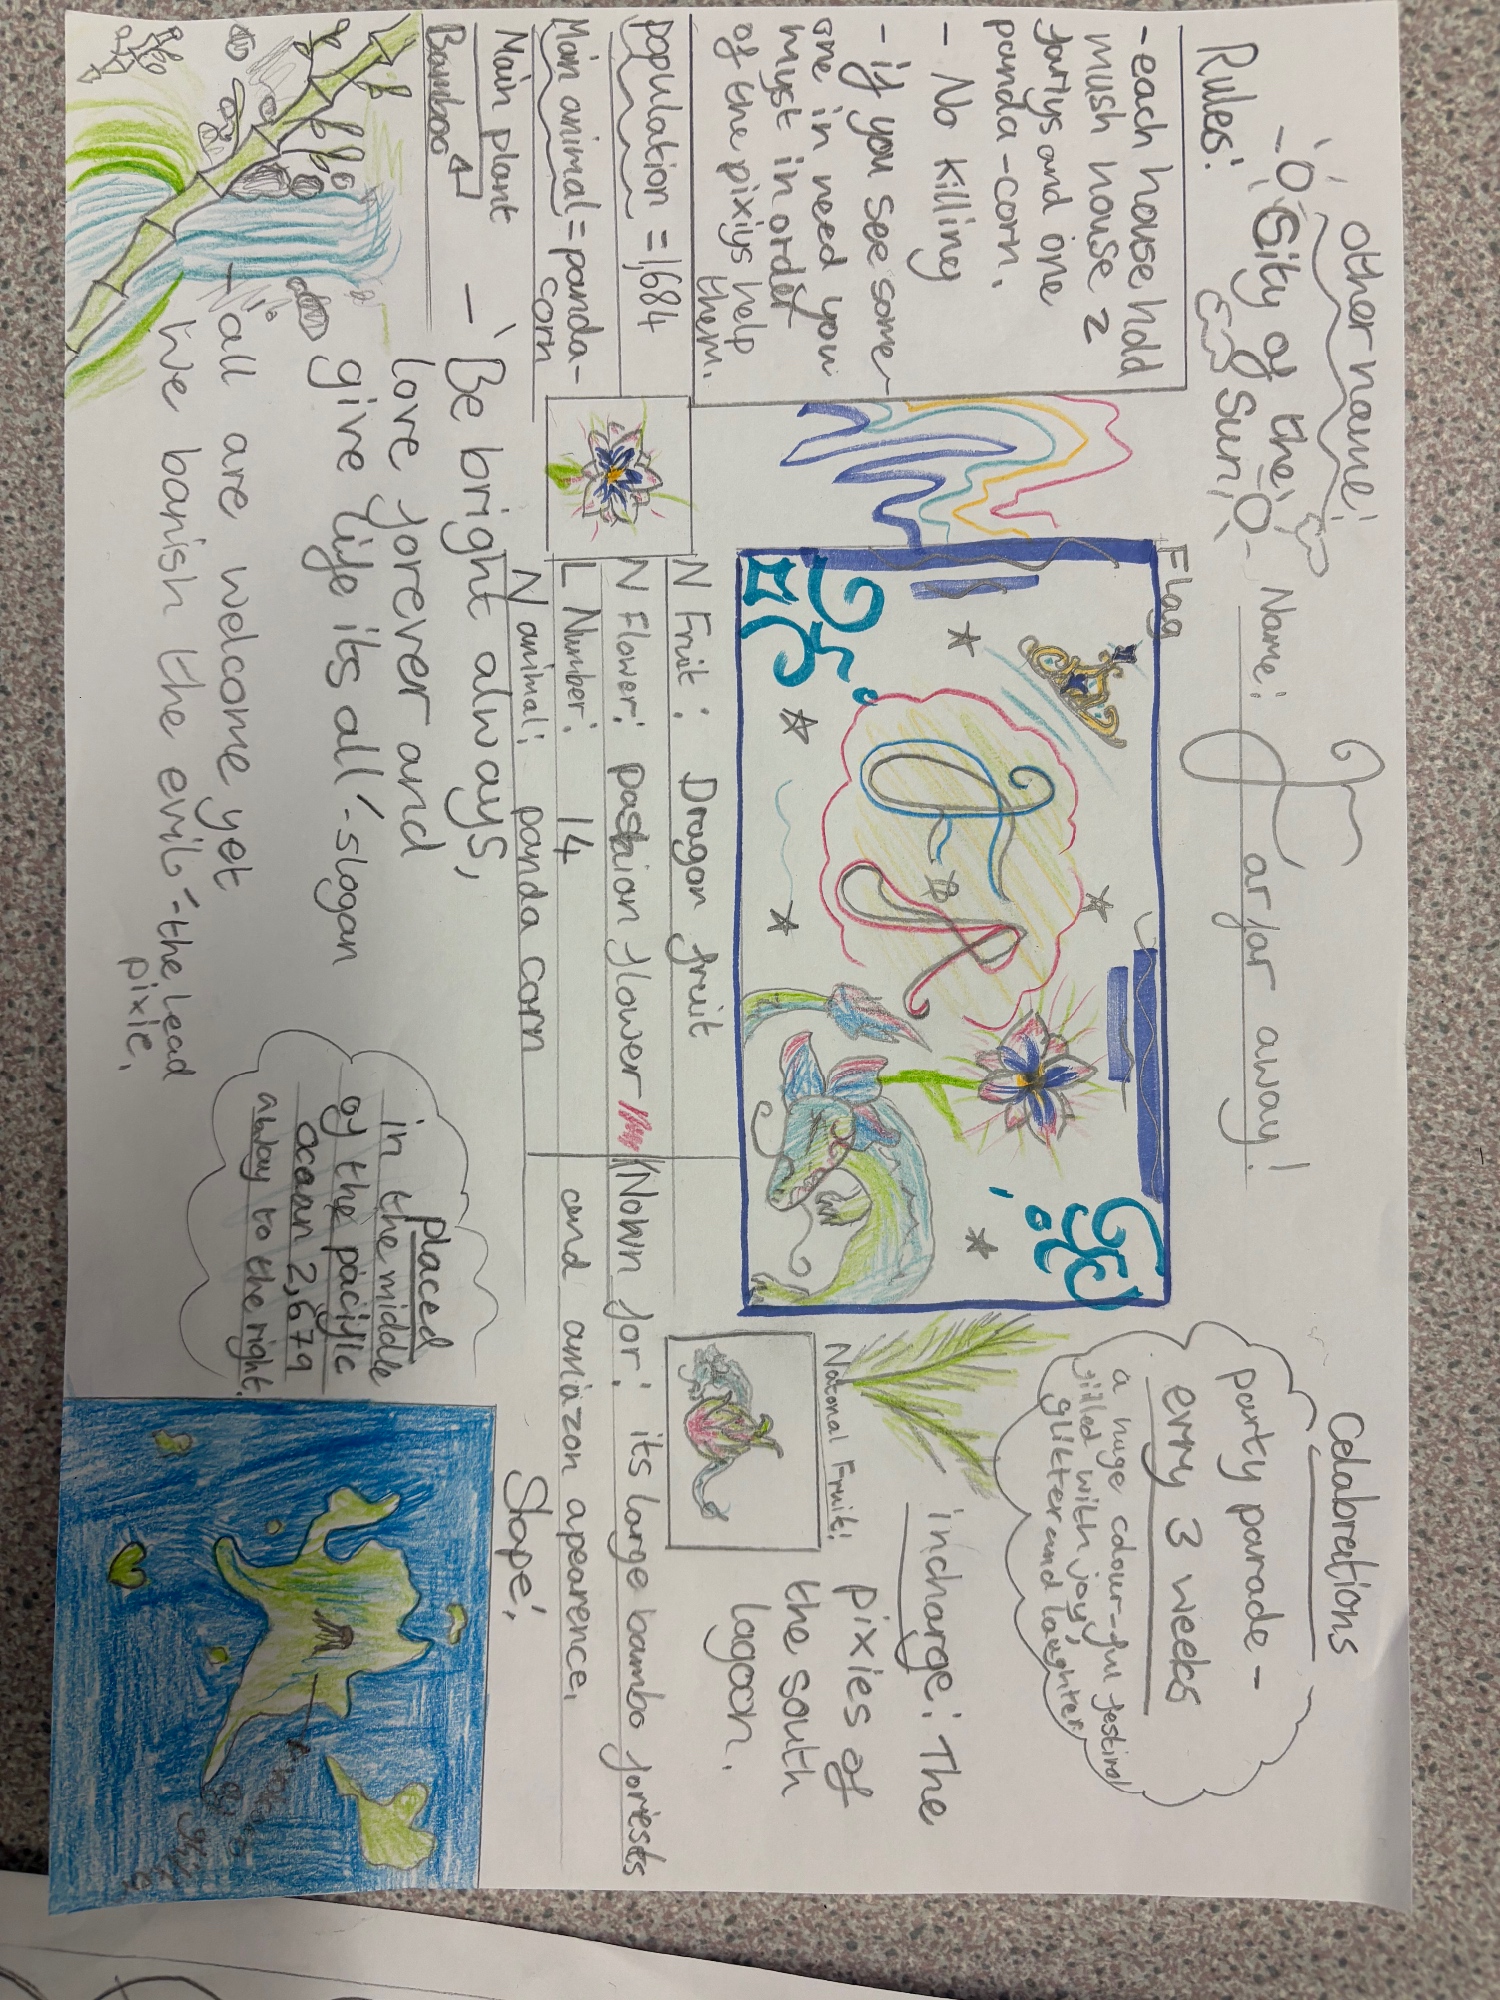 other name:
City of the
Sun
Name: Far far away!
Celabrations
party parade -
evrry 3 weeks
a huge colour-ful festival
filled with joy,
glitter and laughter
Rules:
- each house hold
mush house 2
fartys and one
panda-corn.
- No killing
- if you see some
one in need you
myst in order
of the pixiys help
them.
population = 1,684
Main animal = panda-
corn
Main plant
Bamboo
Flag
F
A
incharge: The
pixies of
the south
lagoon.
Natonal Fruit!
N Fruit: Dragon fruit
N Flower: passion flower
L Number: 14
N animal: panda corn
Nown for: its large bambo foriests
and amazon apearence,
'Be bright always,
love forever and
give life its all' - slogan
- 'all are welcome yet
we banish the evil' - the lead
pixie.
placed
in the middle
of the pacific
ocean 2,679
abway to the right.
Shape: